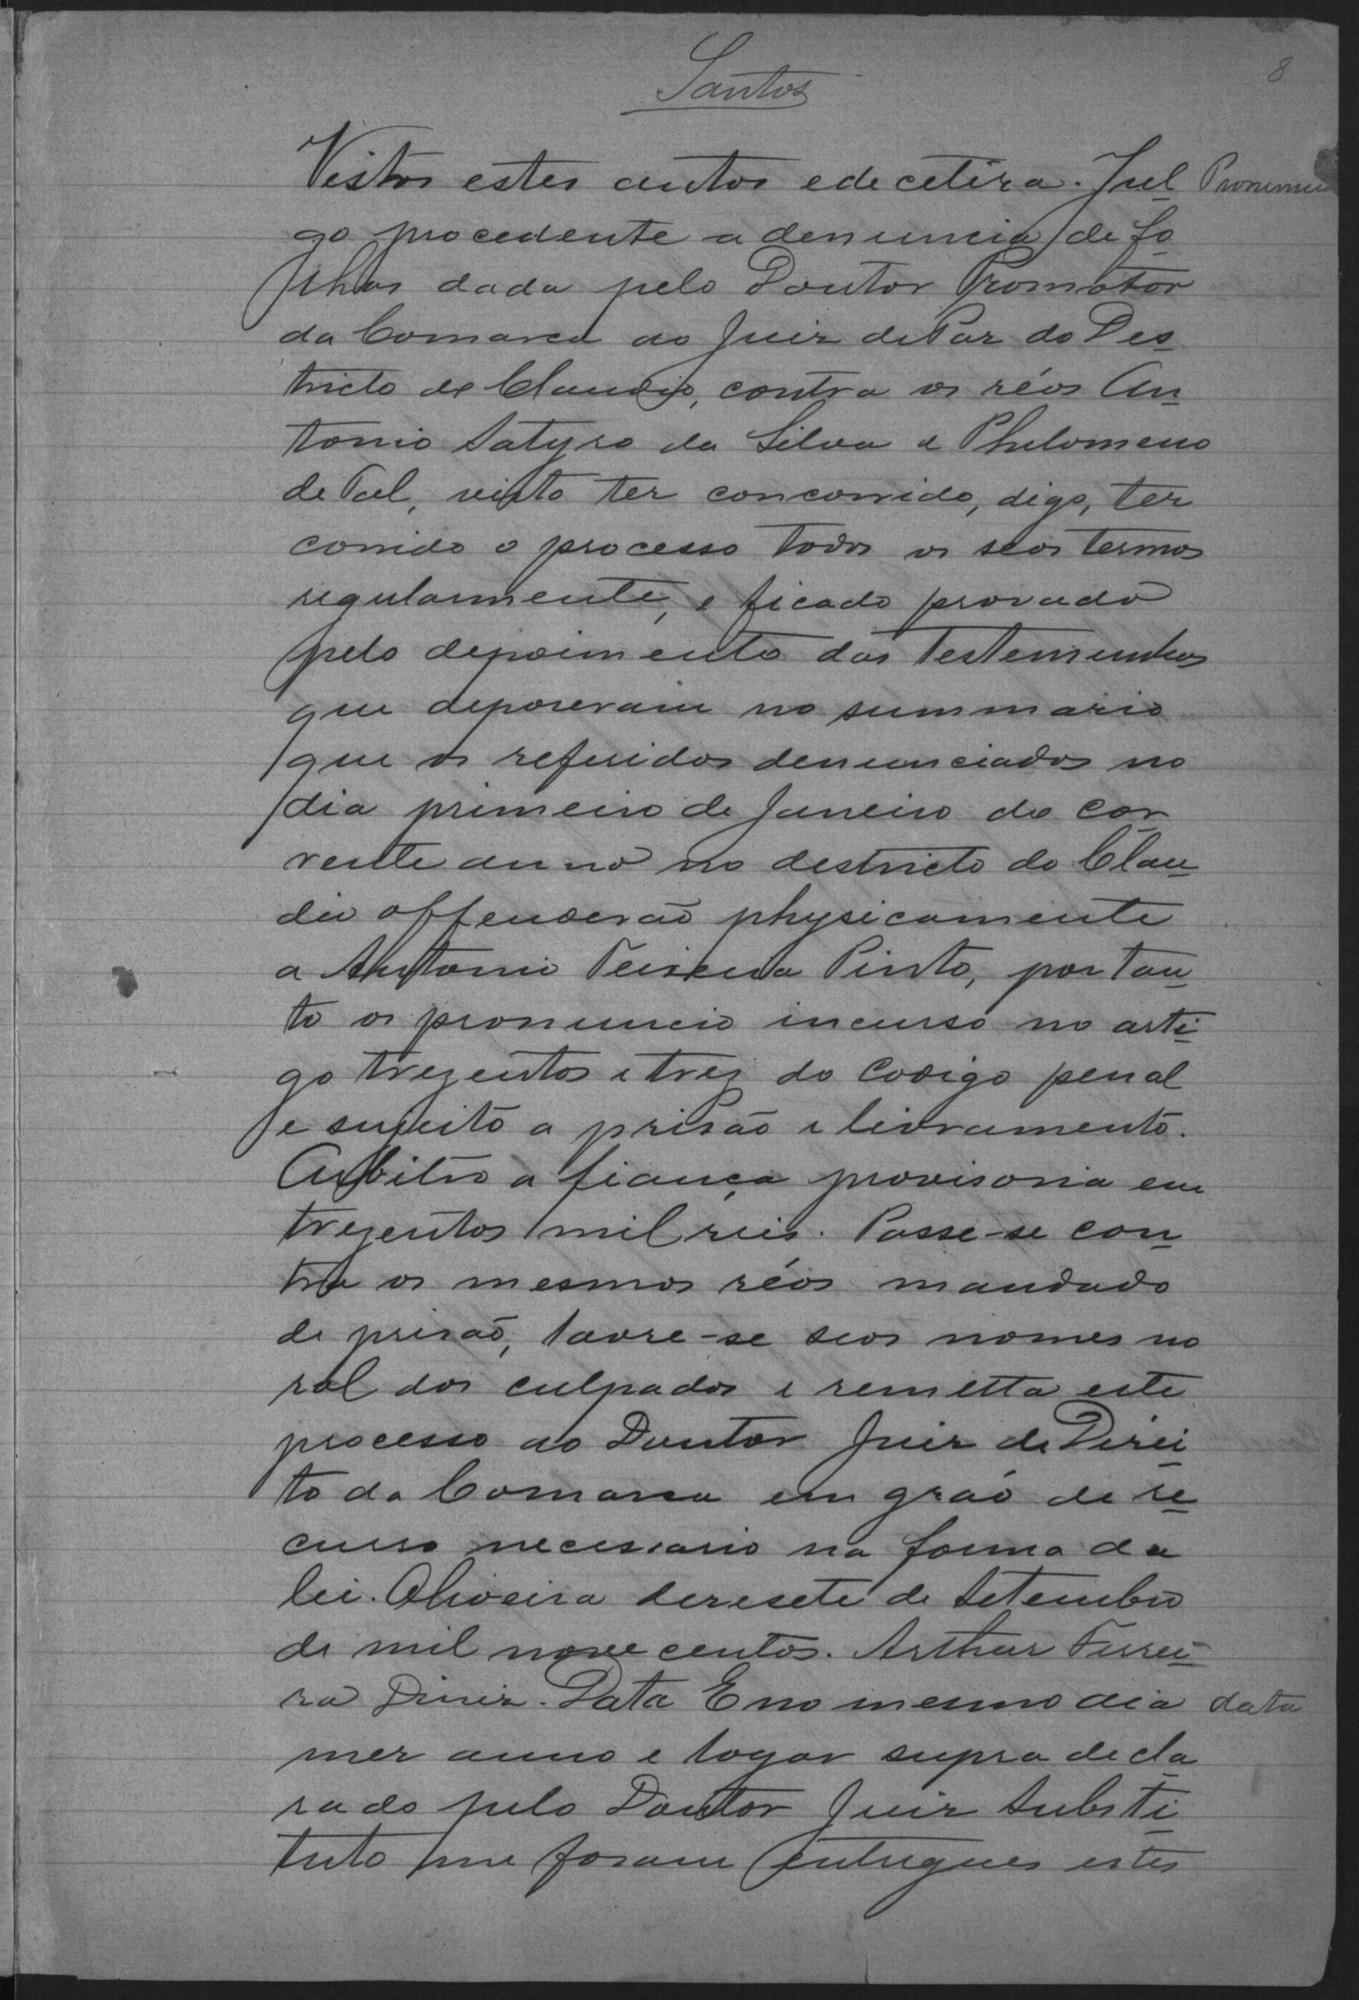 8
Santos
Vistos estes autos e de cetera. Jul
go procedente a denuncia de fo
lhas dada pelo Doutor Promotor
da Comarca ao Juiz de Paz do Des
tricto de Claudio, contra os réos An
tonio Satyro da Silva e Philomeno
de Tal, visto ter concorrido, digo, ter
corrido o processo todos os seos termos
regularmente, e ficado provado
pelo depoimento das testemunhas
que depozeram no summario
que os referidos denunciados no
dia primeiro de Janeiro do cor
rente anno no destricto do Clau
dio offenderão physicamente
a Antonio Teixeira Pinto, portan
to os pronuncio incurso no arti
go trezentos e trez do codigo penal
e sujeito a prisão e livramento.
Arbitro a fiança provisoria em
trezentos mil reis. Passe-se con
tra os mesmos réos mandado
de prisão, lavre-se seos nomes no
rol dos culpados e remetta este
processo ao Doutor Juiz de Direi
to da Comarca em gráo de re
curso necessario na forma da
lei. Oliveira dezesete de Setembro
de mil nove centos. Arthur Ferrei
ra Diniz. Data E no mesmo dia
data
mez anno e logar supra decla
rado pelo Doutor Juiz Substi
tuto me foram entregues estes